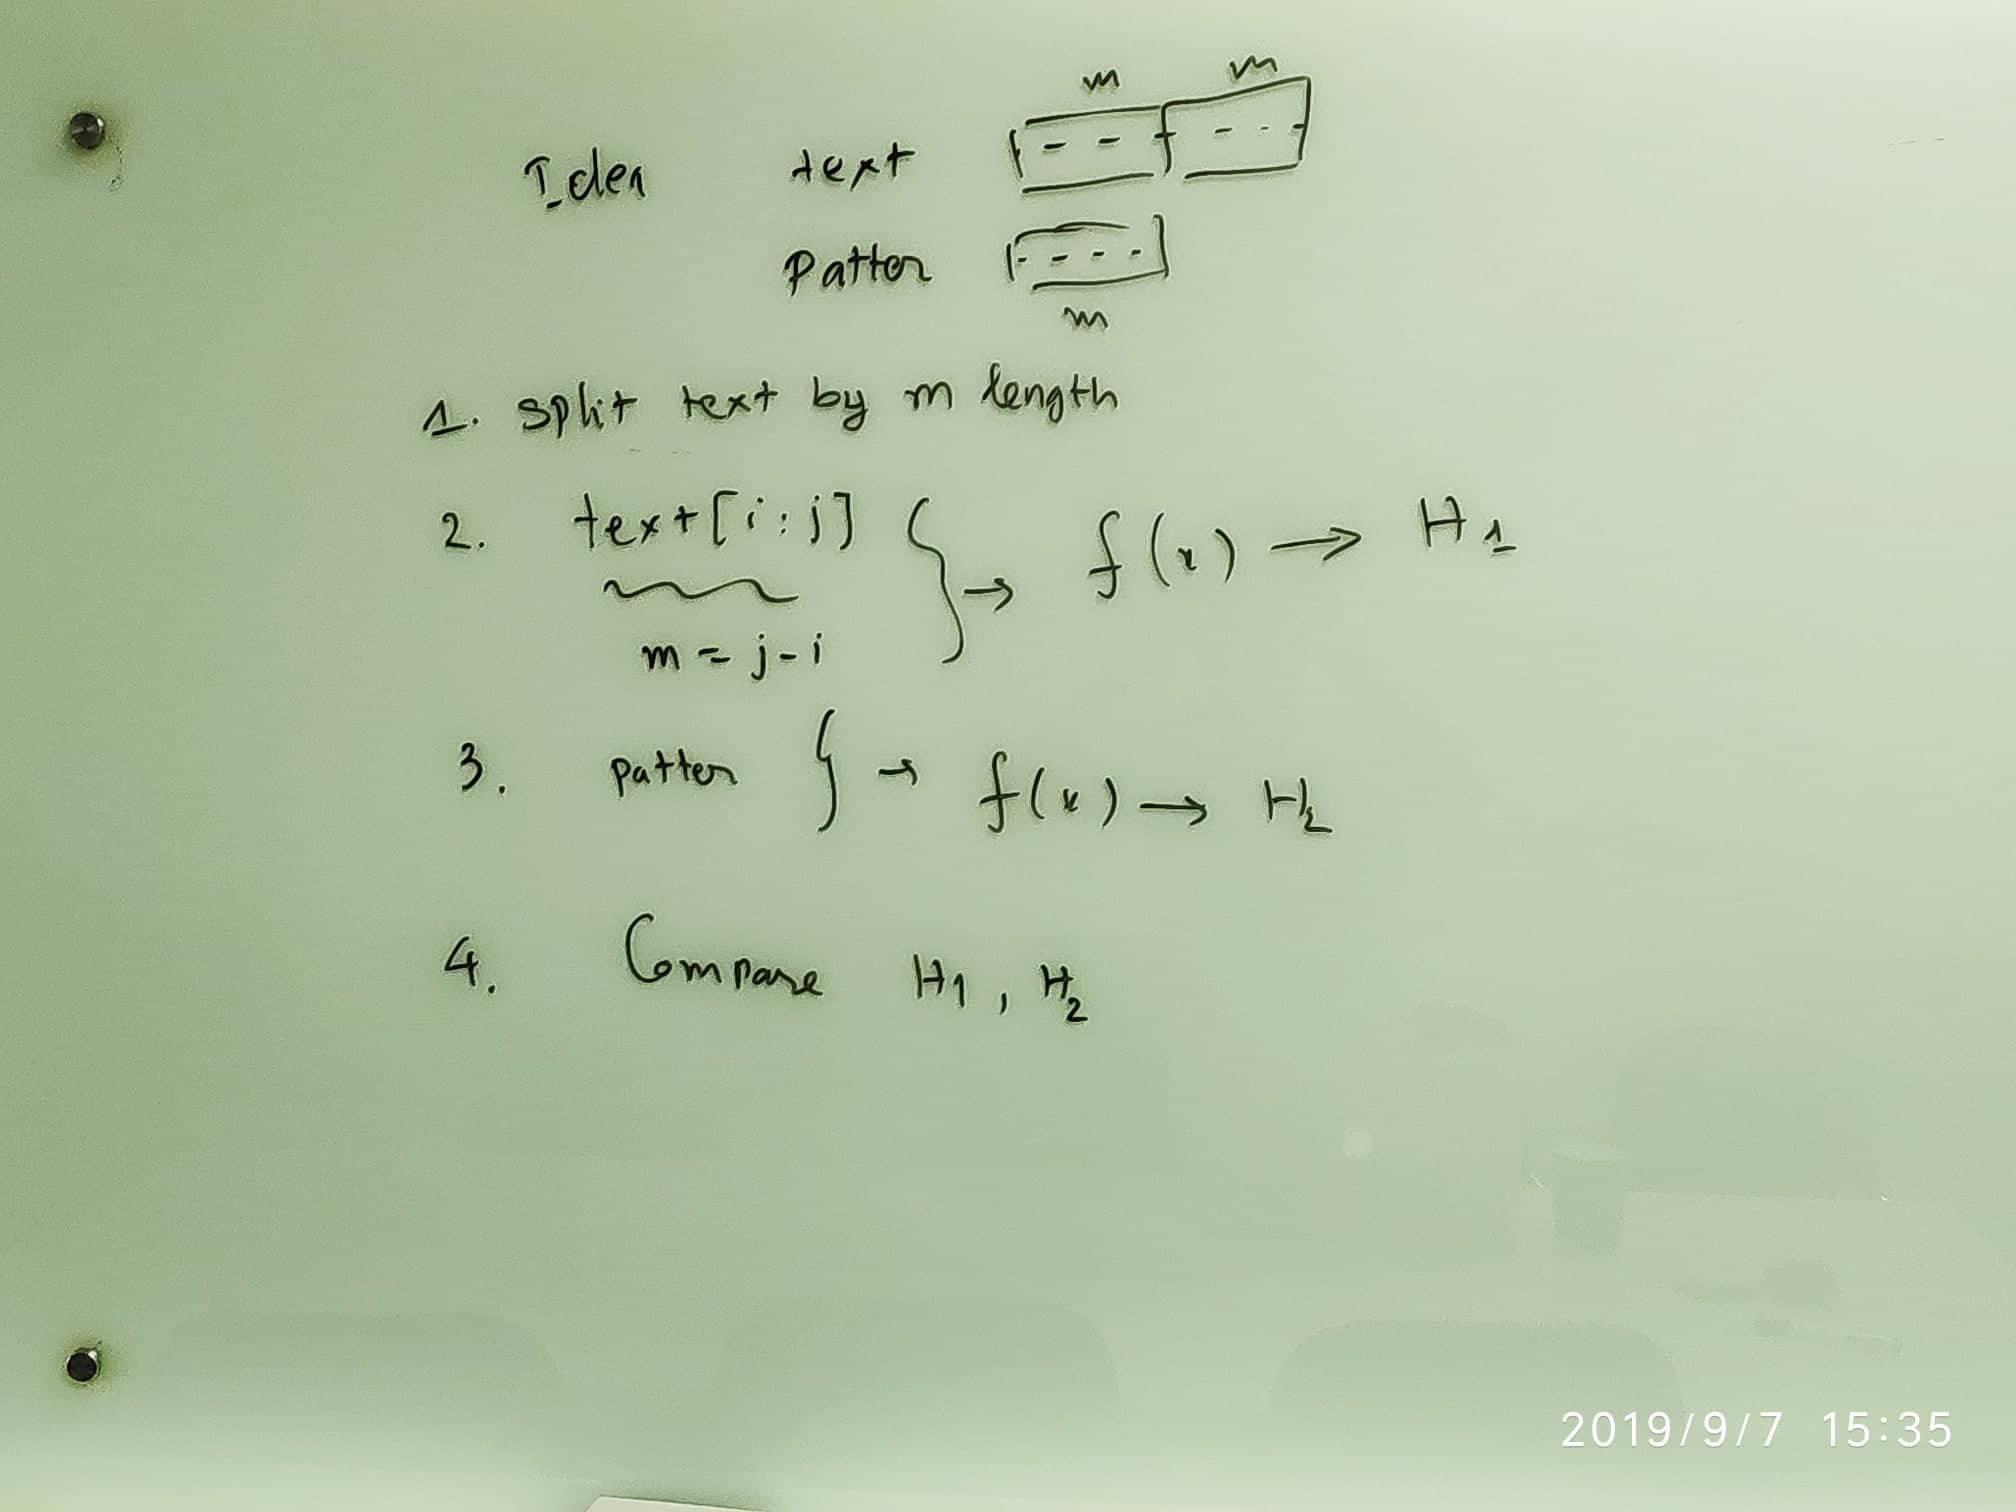 m m
Idea text
Patter
m
1. split text by m length
2. text[i:j] } → f(x) → H1
m = j-i
3. patter } → f(x) → H2
4. Compare H1, H2
2019/9/7 15:35